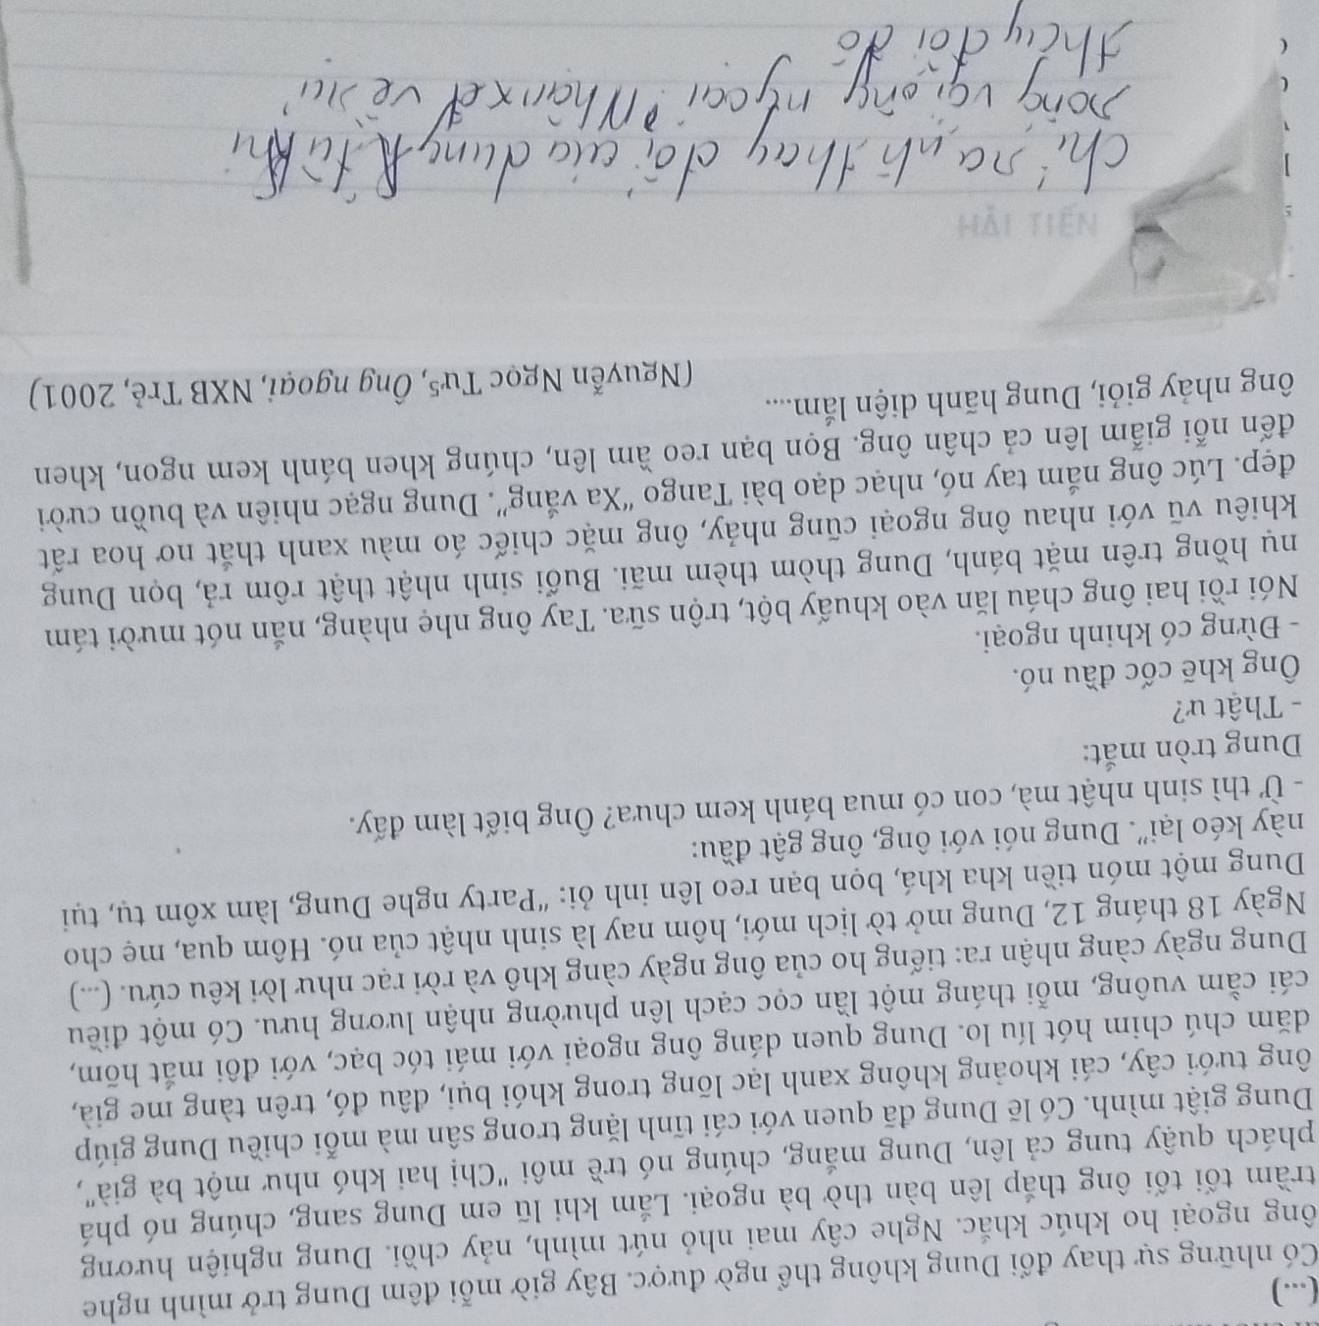 (...)
Có những sự thay đổi Dung không thể ngờ được. Bây giờ mỗi đêm Dung trở mình nghe
ông ngoại ho khúc khắc. Nghe cây mai nhỏ nứt mình, nảy chồi. Dung nghiện hương
trầm tối tối ông thắp lên bàn thờ bà ngoại. Lắm khi lũ em Dung sang, chúng nó phá
phách quậy tung cả lên, Dung mắng, chúng nó trề môi "Chị hai khó như một bà già",
Dung giật mình. Có lẽ Dung đã quen với cái tĩnh lặng trong sân mà mỗi chiều Dung giúp
ông tưới cây, cái khoảng không xanh lạc lõng trong khói bụi, đâu đó, trên tàng me già,
dăm chú chim hót líu lo. Dung quen dáng ông ngoại với mái tóc bạc, với đôi mắt hõm,
cái cằm vuông, mỗi tháng một lần cọc cạch lên phường nhận lương hưu. Có một điều
Dung ngày càng nhận ra: tiếng ho của ông ngày càng khô và rời rạc như lời kêu cứu. (...)
Ngày 18 tháng 12, Dung mở tờ lịch mới, hôm nay là sinh nhật của nó. Hôm qua, mẹ cho
Dung một món tiền kha khá, bọn bạn reo lên inh ỏi: "Party nghe Dung, làm xôm tụ, tụi
này kéo lại". Dung nói với ông, ông gật đầu:
- Ừ thì sinh nhật mà, con có mua bánh kem chưa? Ông biết làm đấy.
Dung tròn mắt:
- Thật ư?
Ông khẽ cốc đầu nó.
- Đừng có khinh ngoại.
Nói rồi hai ông cháu lăn vào khuấy bột, trộn sữa. Tay ông nhẹ nhàng, nắn nót mười tám
nụ hồng trên mặt bánh, Dung thòm thèm mãi. Buổi sinh nhật thật rôm rả, bọn Dung
khiêu vũ với nhau ông ngoại cũng nhảy, ông mặc chiếc áo màu xanh thắt nơ hoa rất
đẹp. Lúc ông nắm tay nó, nhạc dạo bài Tango "Xa vắng". Dung ngạc nhiên và buồn cười
đến nỗi giẫm lên cả chân ông. Bọn bạn reo ầm lên, chúng khen bánh kem ngon, khen
ông nhảy giỏi, Dung hãnh diện lắm....
(Nguyễn Ngọc Tư⁵, Ông ngoại, NXB Trẻ, 2001)
HẢI TIẾN
thay đổi của dung từ khi
với ông ngoại? Nhận xét về sự
thay đổi đó